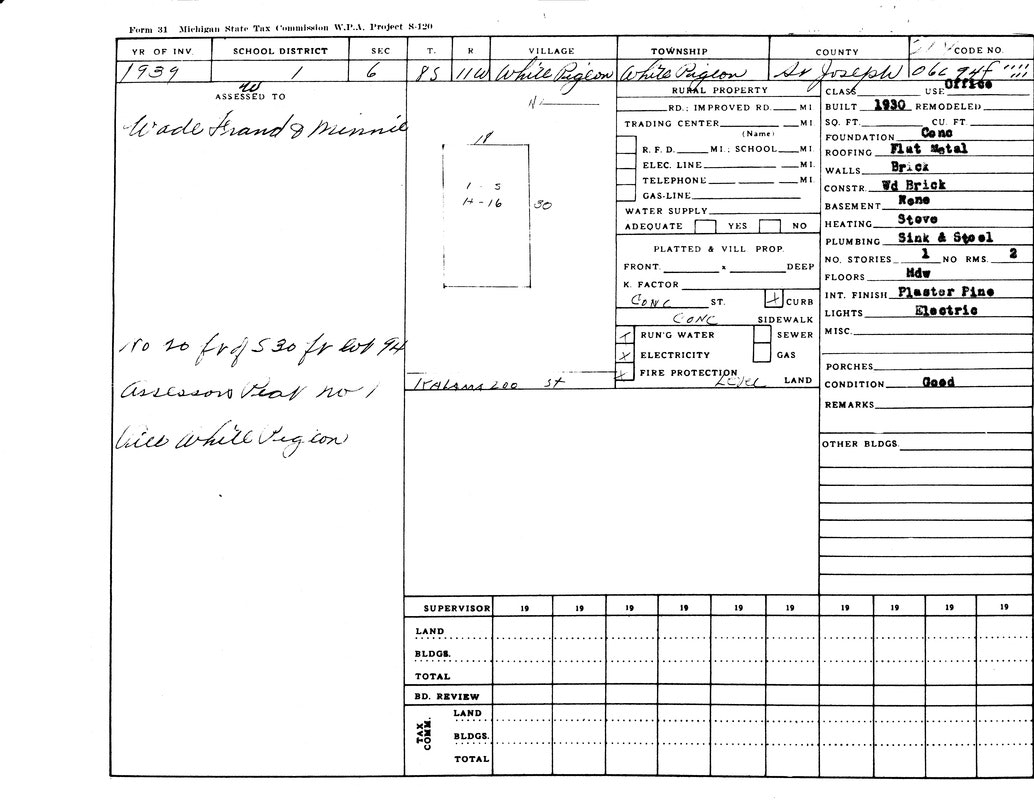 Form 31 Michigan State Tax Commission W.P.A. Project S-120
YR OF INV. SCHOOL DISTRICT SEC T. R VILLAGE TOWNSHIP COUNTY CODE NO.
1939 1 6 8S 11W White Pigeon White Pigeon St Joseph 06C 94f
W
ASSESSED TO
Wade Frand & Minnie
No 20 ft of S 30 ft lot 94
Assessors Plat no 1
Vill White Pigeon
N
19
1 - S
H - 16
30
Kalamazoo St
RURAL PROPERTY
RD.; IMPROVED RD. MI
TRADING CENTER MI
(Name)
R. F. D. MI.; SCHOOL MI.
ELEC. LINE MI.
TELEPHONE MI.
GAS-LINE
WATER SUPPLY
ADEQUATE YES NO
PLATTED & VILL PROP.
FRONT. x DEEP
K. FACTOR
CONC ST. X CURB
CONC SIDEWALK
X RUN'G WATER SEWER
X ELECTRICITY GAS
X FIRE PROTECTION
Level LAND
CLASS USE Office
BUILT 1930 REMODELED
SQ. FT. CU. FT.
FOUNDATION Conc
ROOFING Flat Metal
WALLS Brick
CONSTR. Wd Brick
BASEMENT None
HEATING Stove
PLUMBING Sink & Stool
NO. STORIES 1 NO RMS. 2
FLOORS Hdw
INT. FINISH Plaster Pine
LIGHTS Electric
MISC.
PORCHES
CONDITION Good
REMARKS
OTHER BLDGS.
SUPERVISOR 19 19 19 19 19 19 19 19 19 19
LAND
BLDGS.
TOTAL
BD. REVIEW
TAX COMM.
LAND
BLDGS.
TOTAL